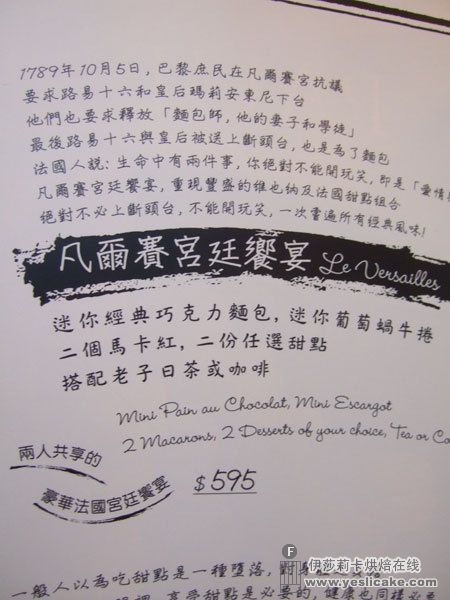 1789年10月5日，巴黎庶民在凡爾賽宮抗議
要求路易十六和皇后瑪莉安東尼下台
他們也要求釋放「麵包師，他的妻子和學徒」
最後路易十六與皇后被送上斷頭台，也是為了麵包
法國人說：生命中有兩件事，你絕對不能開玩笑，即是「愛情
凡爾賽宮廷饗宴，重現豐盛的維也納及法國甜點組合
絕對不必上斷頭台，不能開玩笑，一次嘗遍所有經典風味！
凡爾賽宮廷饗宴 Le Versailles
迷你經典巧克力麵包，迷你葡萄蝸牛捲
二個馬卡紅，二份任選甜點
搭配老子曰茶或咖啡
Mini Pain au Chocolat, Mini Escargot
2 Macarons, 2 Desserts of your choice, Tea or Co
兩人共享的
豪華法國宮廷饗宴
$595
一般人以為吃甜點是一種墮落，對身
享受甜點是必要的，健康也同樣必要
F
伊莎莉卡烘焙在线
www.yeslicake.com